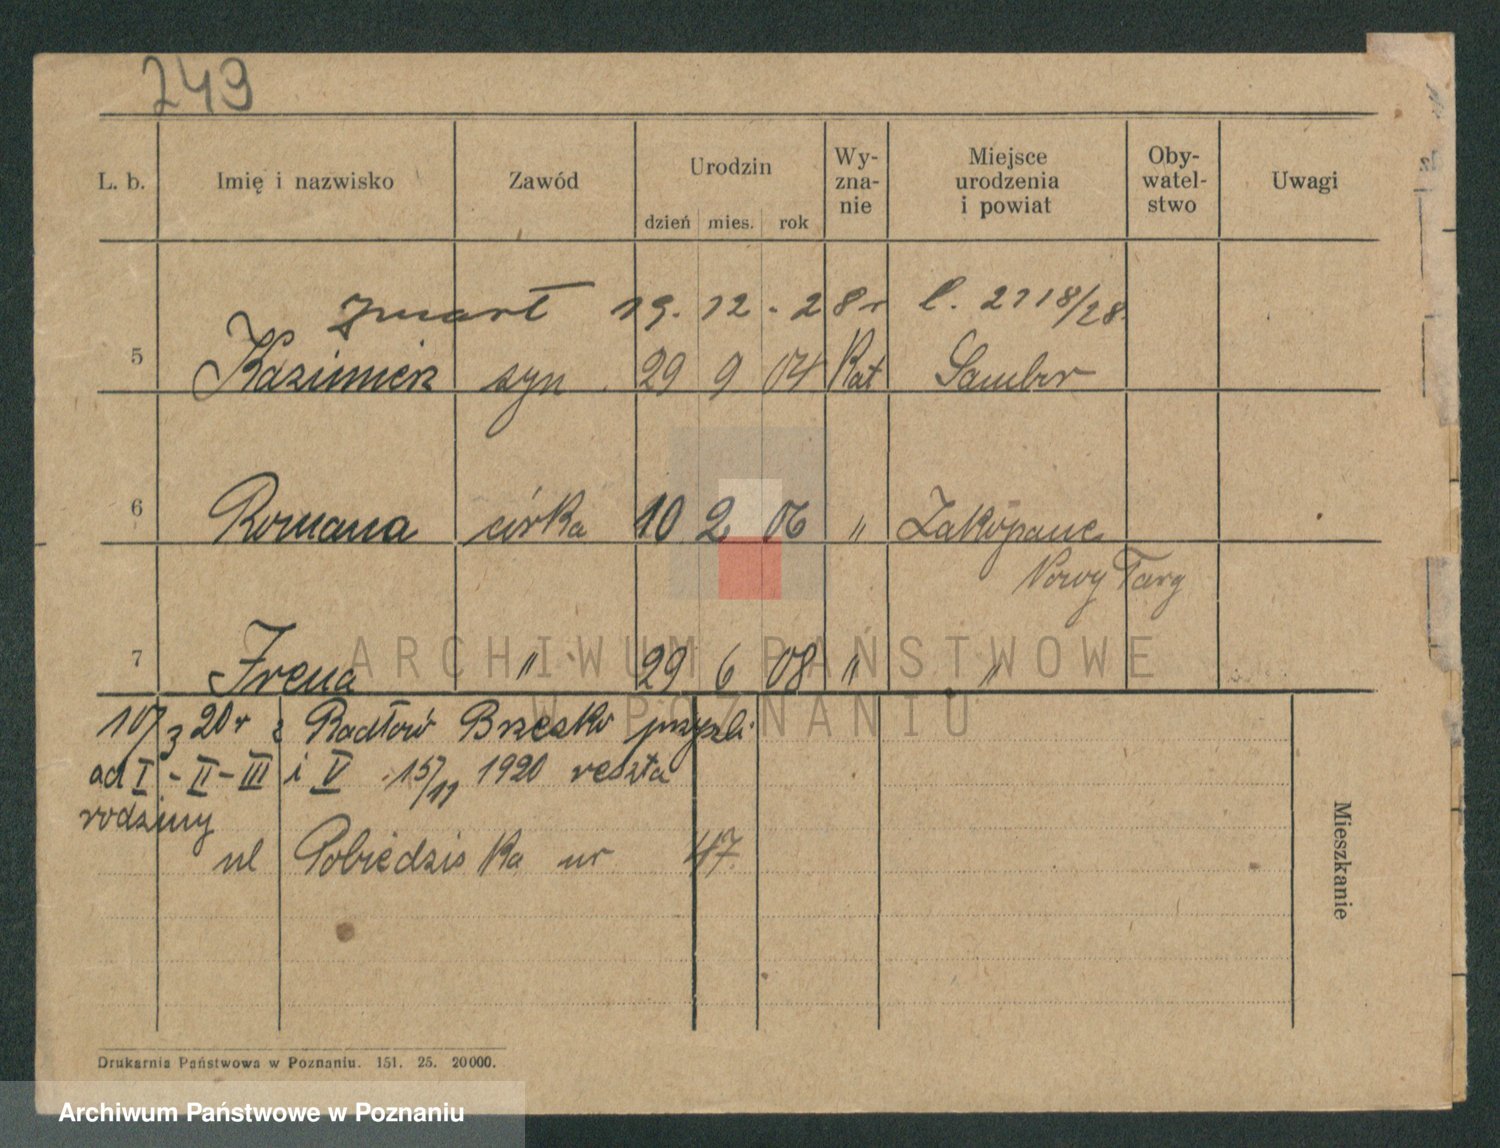 249
L. b. Imię i nazwisko Zawód Urodzin Wy-zna-nie Miejsce urodzenia i powiat Oby-watel-stwo Uwagi
dzień mies. rok
zmarł 19. 12. 28 r l. 2718/28.
5 Kazimierz syn 29 9 04 Kat Sambor
6 Romana córka 10 2 06 " Zakopane
Nowy Targ
7 Irena " 29 6 08 " "
10/3 20 r z Radłów Brzesko przyb.
ad I - II - III i V 15/11 1920 reszta
rodziny
ul Pobiedziska nr 47.
Mieszkanie
Drukarnia Państwowa w Poznaniu. 151. 25. 20000.
ARCHIWUM PAŃSTWOWE
W POZNANIU
Archiwum Państwowe w Poznaniu